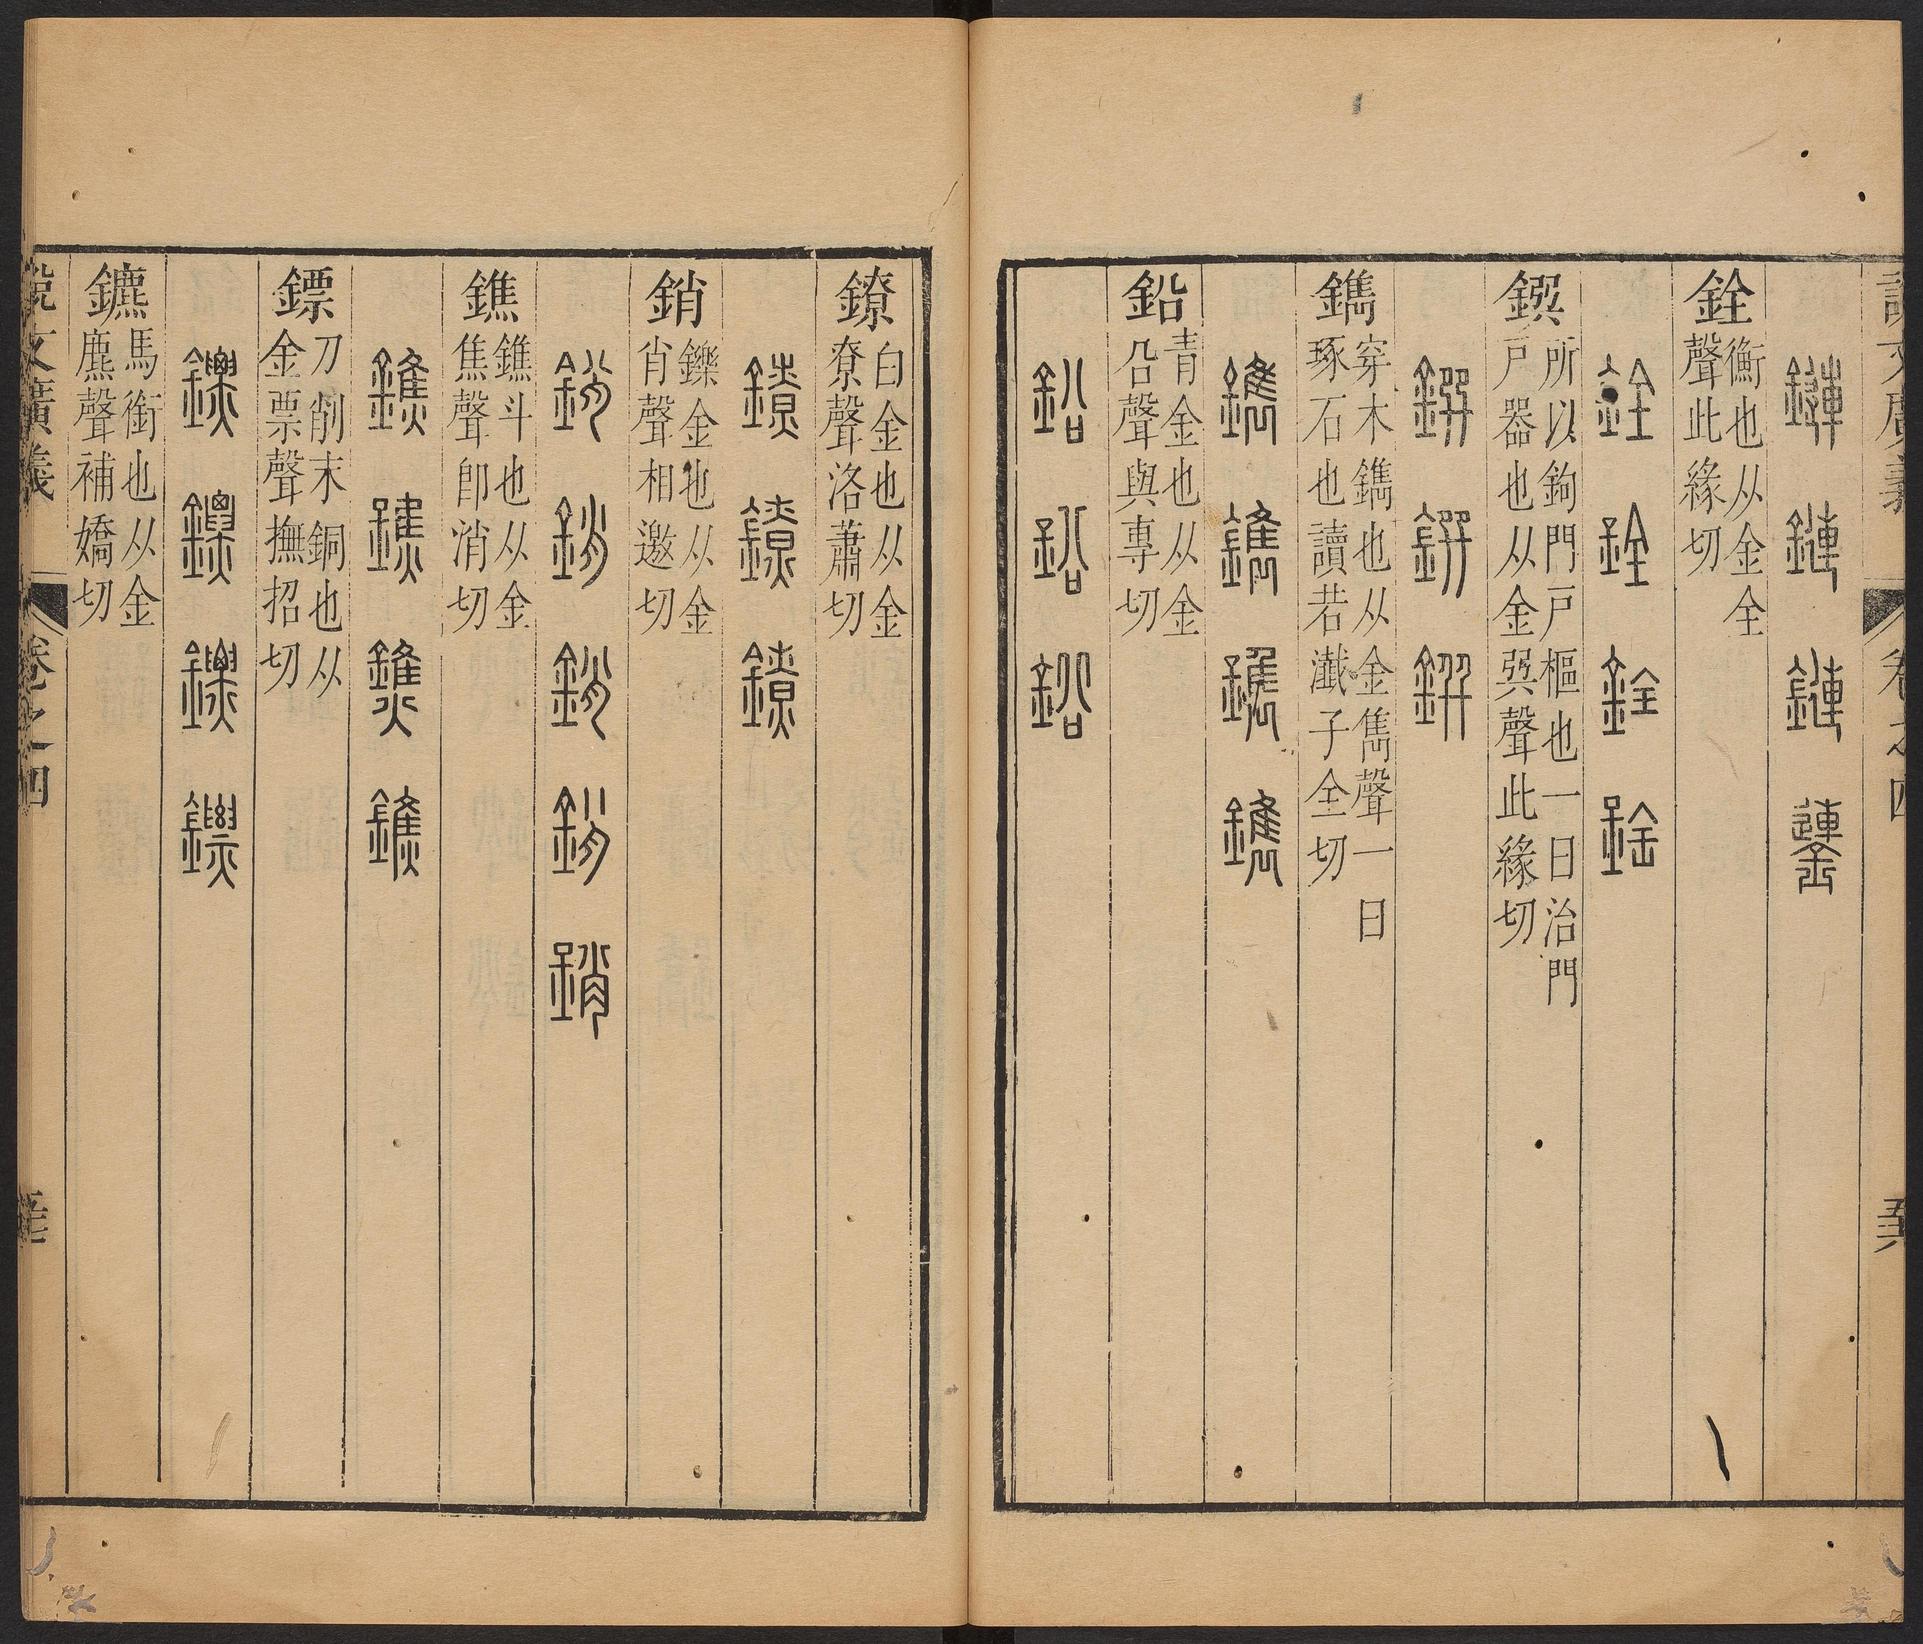 說文廣義 卷之四
鏈 鏈 鏈 鏈
銓 衡也从金全
聲此緣切
銓 銓 銓 銓
鐉 所以鉤門戶樞也一曰治門
戶器也从金巽聲此緣切
鐉 鐉 鐉
鐫 穿木鐫也从金雋聲一曰
琢石也讀若瀸子全切
鐫 鐫 鐫 鐫
鉛 青金也从金
㕣聲與專切
鉛 鉛 鉛
鐐 白金也从金
尞聲洛蕭切
鐐 鐐 鐐
銷 鑠金也从金
肖聲相邀切
銷 銷 銷 銷 銷
鐎 鐎斗也从金
焦聲卽消切
鐎 鐎 鐎 鐎
鏢 刀削末銅也从
金票聲撫招切
鏢 鏢 鏢 鏢
鑣 馬銜也从金
麃聲補嬌切
說文廣義 卷之四